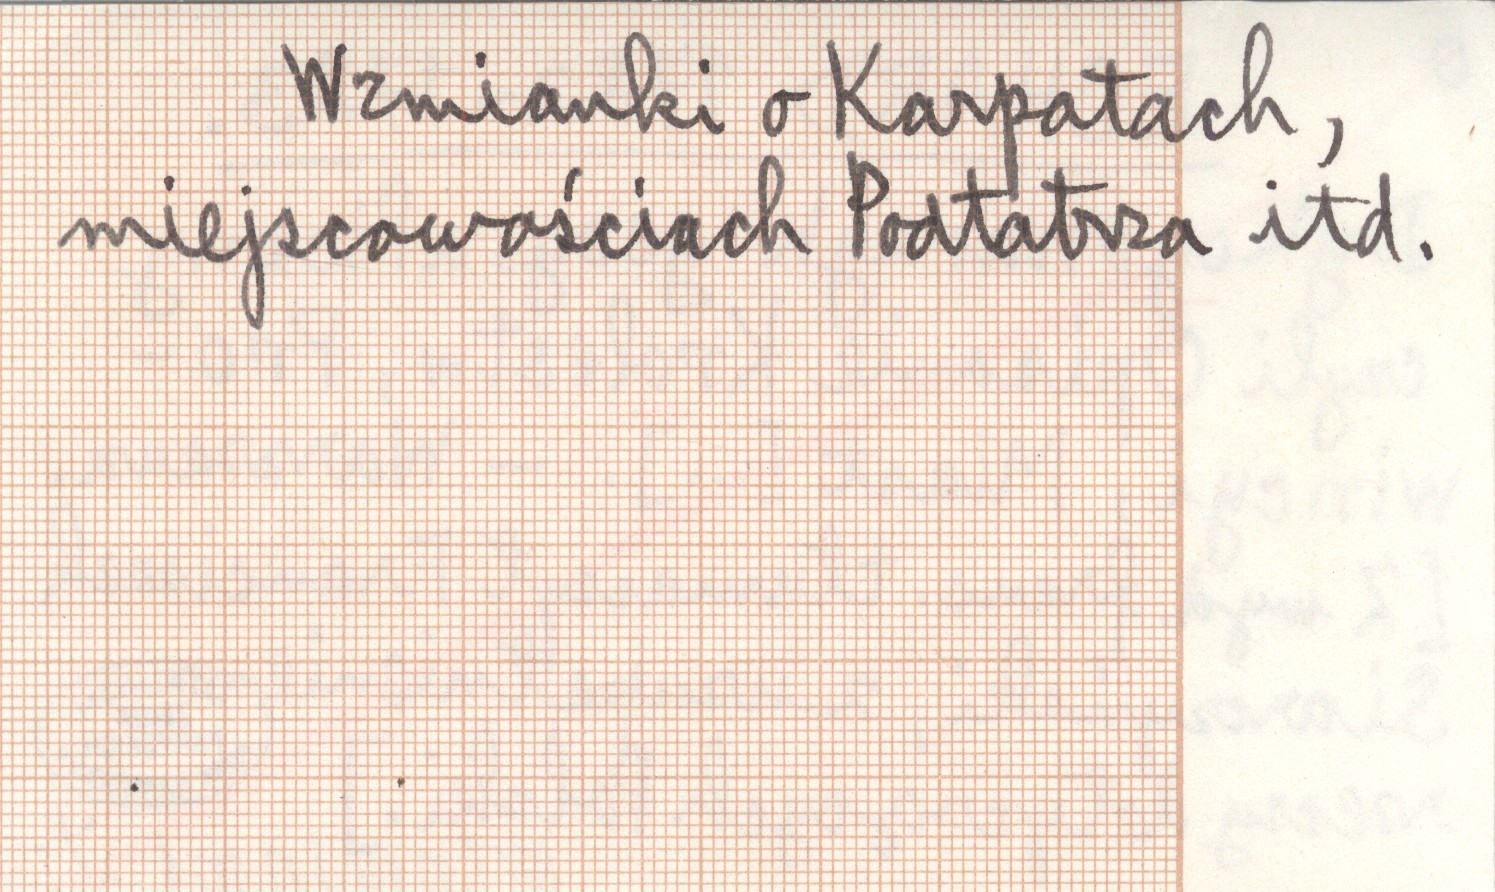 Wzmianki o Karpatach,
miejscowościach Podtatrza itd.